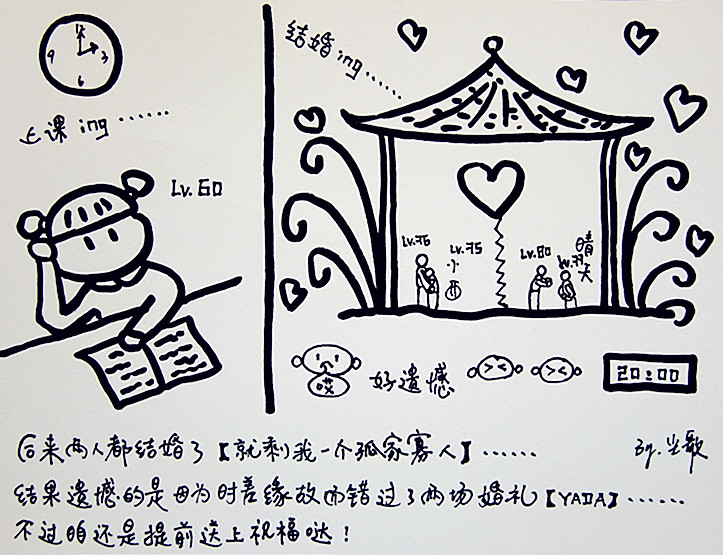 12
9 3
6
上课ing……
Lv.60
结婚ing……
Lv.76
Lv.75
小西
Lv.80
Lv.77
晴天
哎
好遗憾
20:00
后来两人都结婚了【就剩我一个孤家寡人】……
By.
结果遗憾的是因为时差缘故而错过了两场婚礼【YADA】……
不过咱还是提前送上祝福哒！